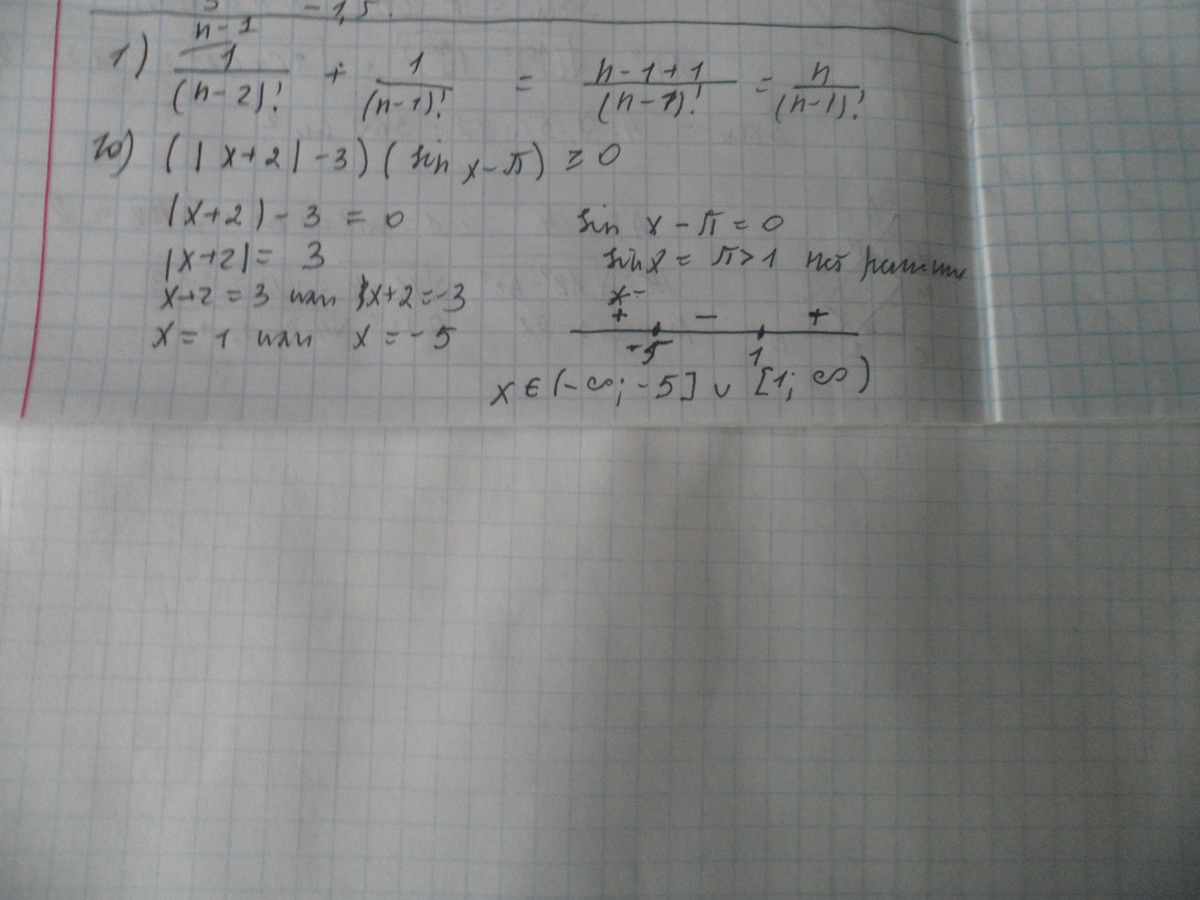 -1,5.
n-1
1) 1/(n-2)! + 1/(n-1)! = n-1+1/(n-1)! = n/(n-1)!
(|x+2|-3)(sin x-π) ≥ 0
|x+2|-3 = 0
|x+2| = 3
x+2 = 3 или x+2 = -3
x = 1 или x = -5
sin x - π = 0
sin x = π > 1 нет решений
x-
+ - +
-5 1
x ∈ (-∞; -5] ∪ [1; ∞)